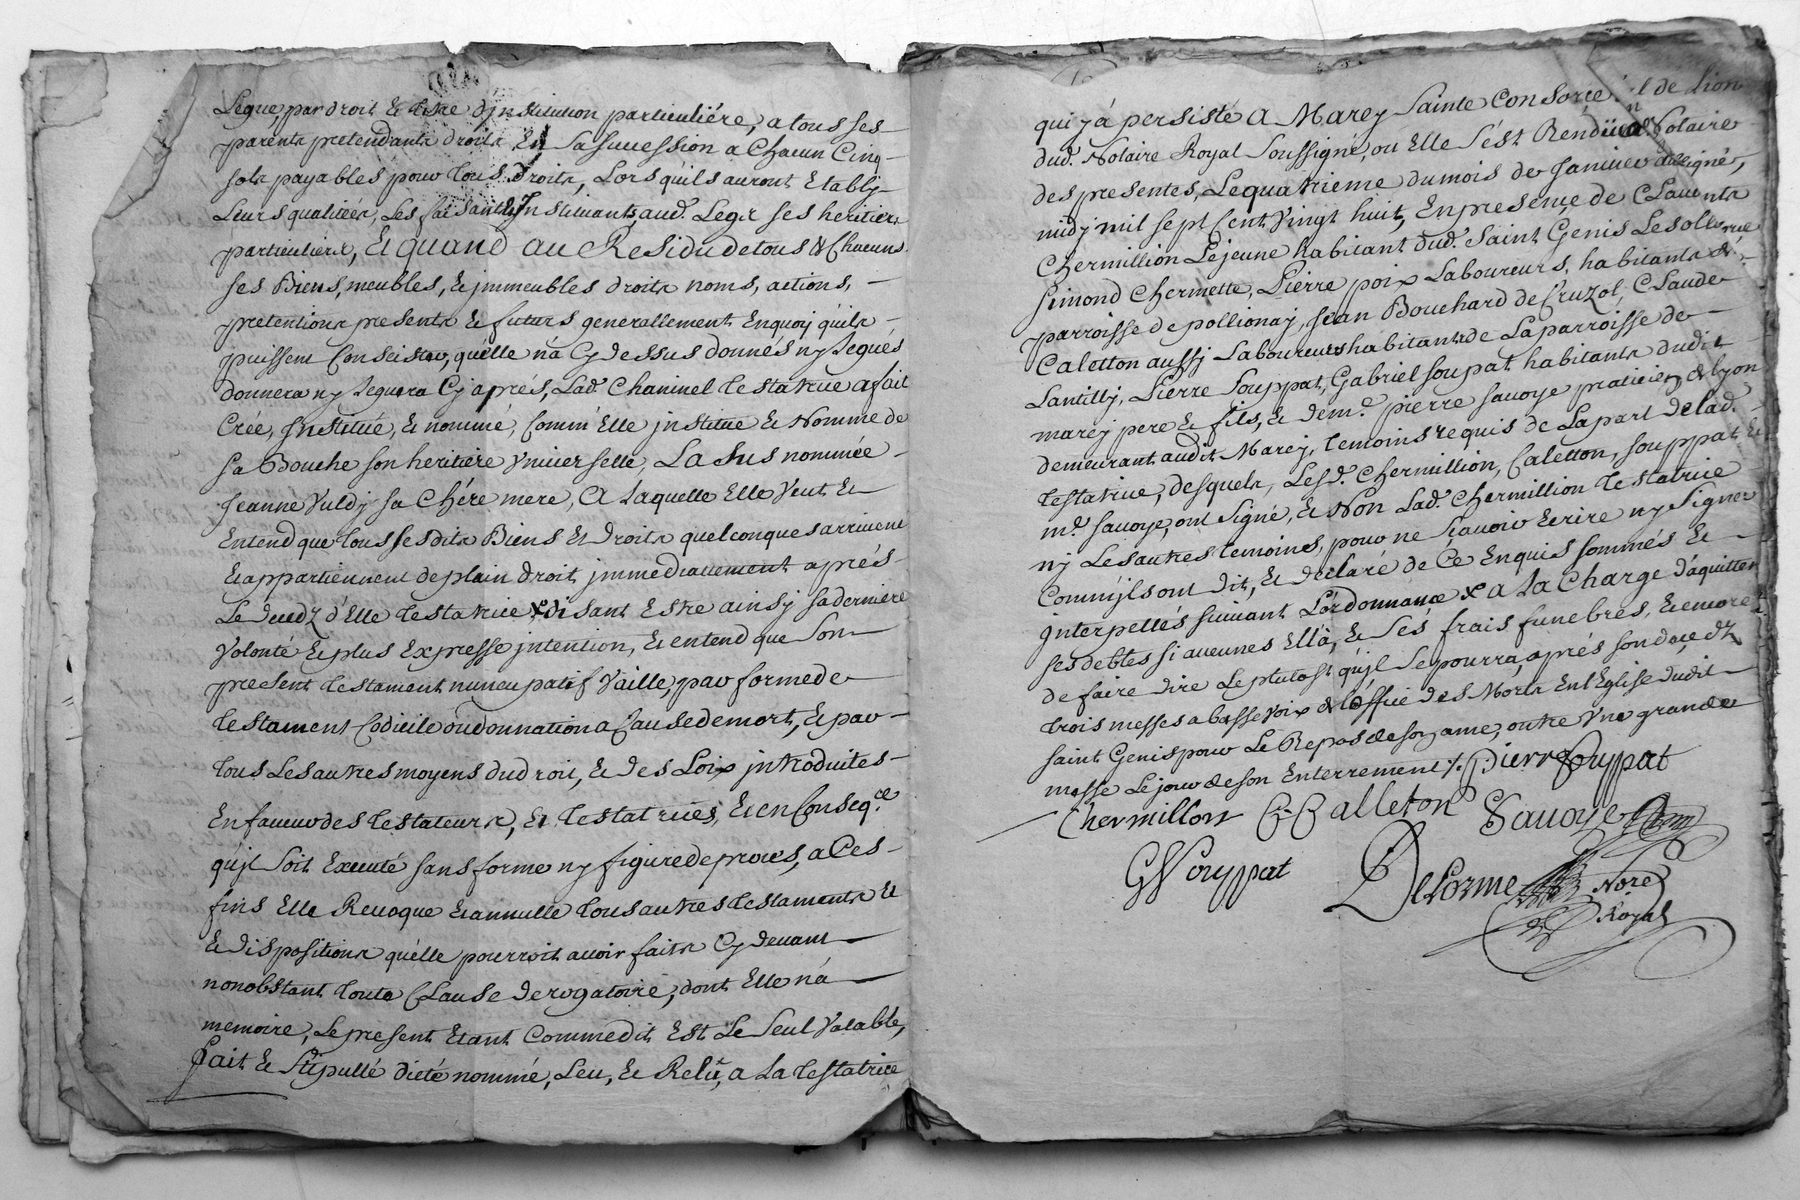 Legue par droit & titre d'institution particuliére, a tous ses
parents pretendants droits En Sa Succession a Chacun Cinq
sols payables pour tous droits, Lors qu'ils auront Etably
Leurs qualitées, Les faisant & Instituants, aud. Legs ses heritiers
particuliers, Et quand au Residu de tous & Chacuns
ses Biens, meubles, & jmmeubles droits noms, actions,
pretentions presents & futurs generallement En quoy qu'ils
puissent Consister, qu'elle n'a Cy dessus donnés ny Legués
donnera ny Leguera Cy aprés, Lad. Chaninel testatrice a fait
Créé, Institué, & nommé, Comm'Elle jnstitue & Nomme de
sa Bouche son heritiere Vniuerselle, La sus nommée
Jeanne Vuldy sa Chére mere, A Laquelle Elle Veut Et
Entend que tous sesdits Biens Et Droits quelconques arrivent
Et appartiennent de plain droit jmmediattement aprés
Le decedz d'Elle testatrice disant Estre ainsy sa derniére
Volonté & plus Expresse jntention, Et entend que Son
present testament nuncupatif Vaille, par forme de
testament Codicile ou donnation a Cause de mort, & par
tous Les autres moyens du droit, & des Loix jntroduites
En faueur des testateurs, Et testatrices, Et en Conseq.ce
qu'jl soit Executé sans forme ny figure de proces, a Ces
fins Elle Reuoque Et annulle tous autres testaments &
& dispositions qu'elle pourroit auoir faits Cy deuant
nonobstant toute Clause derogatoire, dont Elle n'a
memoire, Le present Etant Comme dit Est Le Seul Valable,
fait & Stipullé dicté nommé, Leu, & Relu, a La testatrice
qui y a persisté A Marcy Sainte Consorce de Lion
dud. Notaire Royal Soussigné, ou Elle S'est Rendüe Notaire
des presentes, Le quatrieme du mois de Januier
midy mil sept Cent Vingt huit, En presence de Claude
Chermillion Lejeune habitant dud. Saint Genis Lesolliere
Simond Chermette, Pierre poix Laboureurs, habitants de
parroisse de pollionay, Jean Bouchard de Cruzol, Claude
Caletton aussy Laboureurs habitants de La parroisse de
Lantilly, Pierre Souppat, Gabriel Soupat habitants dudit
marcy pere & fils, & dem.e pierre Sauoye praticien de Lyon
demeurant audit Marcy, temoins requis de La part de Lad.
testatrice, desquels, Lesd. Chermillion, Caletton, Souppat &
m.e Sauoye, ont Signé, & Non Lad. Chermillion testatrice
ny Les autres temoins, pour ne Sçauoir Ecrire ny Signer
Comm'jls ont dit, Et declaré de Ce Enquis Sommés Et
Interpellés suiuant L'ordonnance x a La Charge d'aquitter
ses debtes si aucunes Ell'a, & Ses frais funebres, Et encore
de faire dire Le plutost qu'jl Se pourra, aprés son decedz
trois messes a basse voix & L'office des Morts En L'Eglise dudit
saint Genis pour Le Repos de son ame, outre Vne grande
messe Le jour de son Enterrement /. pierr Souppat
Chermillon C. Calleton Sauoye
G Souppat Delorme No.re
Royal